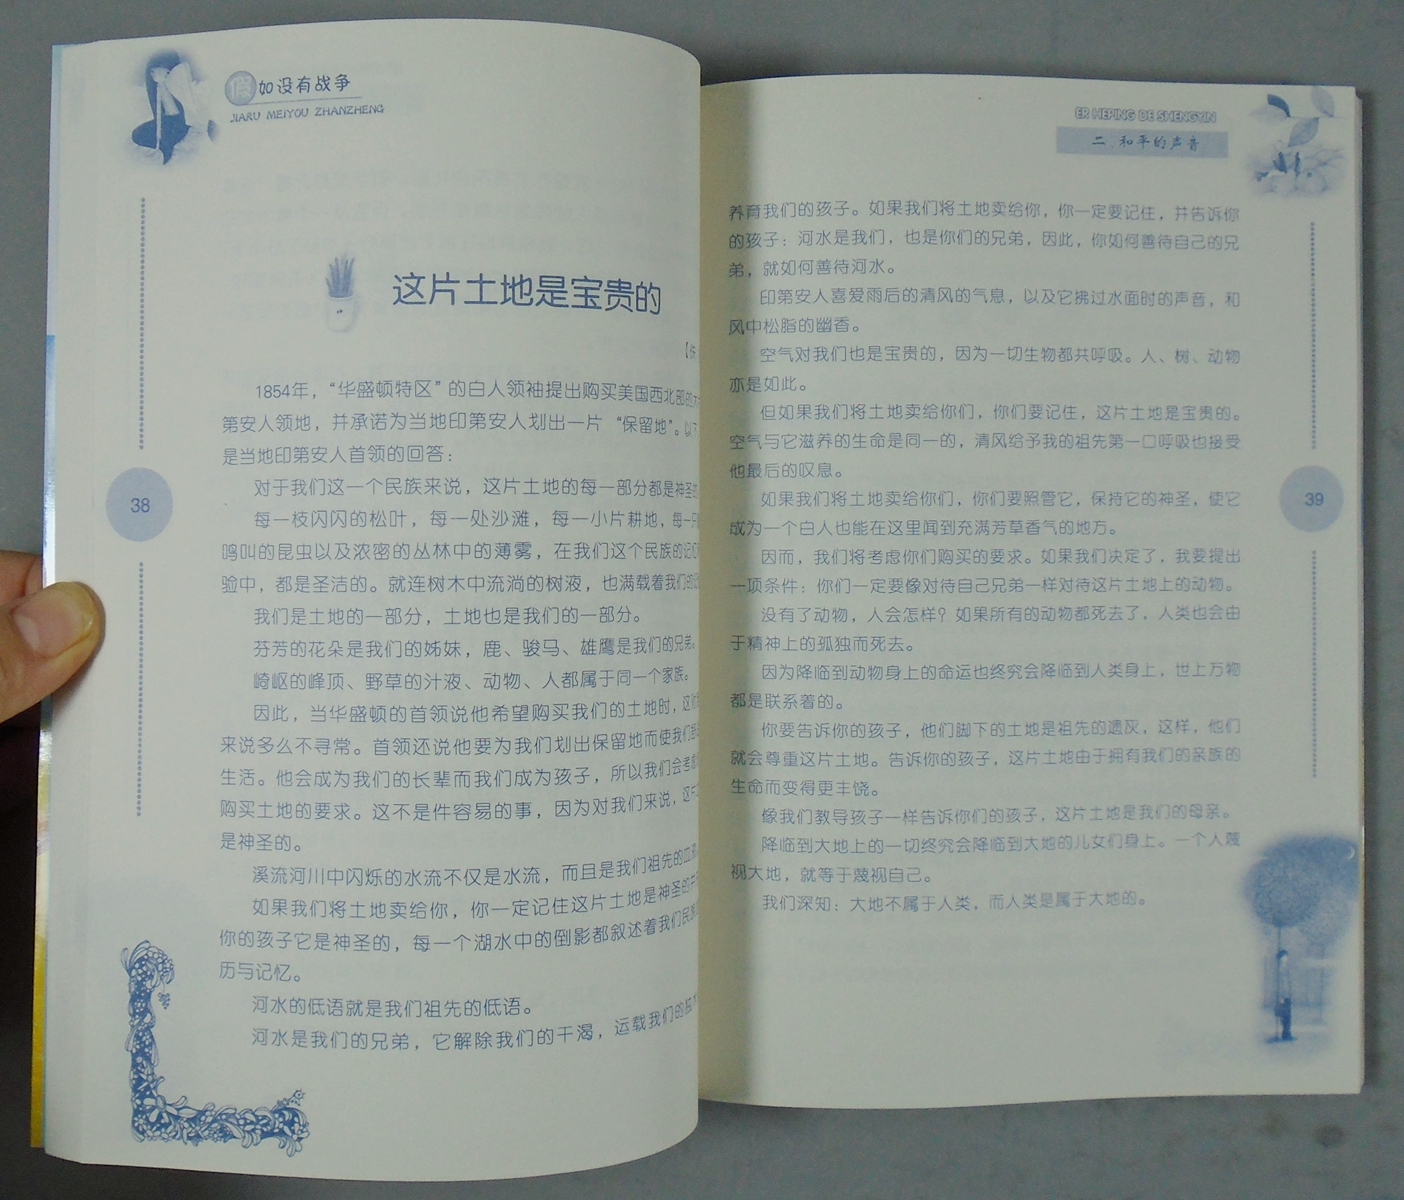 假如没有战争
JIARU MEIYOU ZHANZHENG
这片土地是宝贵的
1854年，“华盛顿特区”的白人领袖提出购买美国西北部的
第安人领地，并承诺为当地印第安人划出一片 “保留地”。以下
是当地印第安人首领的回答：
对于我们这一个民族来说，这片土地的每一部分都是神圣的
每一枝闪闪的松叶，每一处沙滩，每一小片耕地，每一
鸣叫的昆虫以及浓密的丛林中的薄雾，在我们这个民族的记
验中，都是圣洁的。就连树木中流淌的树液，也满载着我们的
我们是土地的一部分，土地也是我们的一部分。
芬芳的花朵是我们的姊妹，鹿、骏马、雄鹰是我们的兄弟。
崎岖的峰顶、野草的汁液、动物、人都属于同一个家族。
因此，当华盛顿的首领说他希望购买我们的土地时，这
来说多么不寻常。首领还说他要为我们划出保留地而使我们
生活。他会成为我们的长辈而我们成为孩子，所以我们会考虑
购买土地的要求。这不是件容易的事，因为对我们来说，这片
是神圣的。
溪流河川中闪烁的水流不仅是水流，而且是我们祖先的血
如果我们将土地卖给你，你一定记住这片土地是神圣的
你的孩子它是神圣的，每一个湖水中的倒影都叙述着我们民族
历与记忆。
河水的低语就是我们祖先的低语。
河水是我们的兄弟，它解除我们的干渴，运载我们的独
38
ER HEPING DE SHENGYIN
二、和平的声音
养育我们的孩子。如果我们将土地卖给你，你一定要记住，并告诉你
的孩子：河水是我们，也是你们的兄弟，因此，你如何善待自己的兄
弟，就如何善待河水。
印第安人喜爱雨后的清风的气息，以及它拂过水面时的声音，和
风中松脂的幽香。
空气对我们也是宝贵的，因为一切生物都共呼吸。人、树、动物
亦是如此。
但如果我们将土地卖给你们，你们要记住，这片土地是宝贵的。
空气与它滋养的生命是同一的，清风给予我的祖先第一口呼吸也接受
他最后的叹息。
如果我们将土地卖给你们，你们要照管它，保持它的神圣，使它
成为一个白人也能在这里闻到充满芳草香气的地方。
因而，我们将考虑你们购买的要求。如果我们决定了，我要提出
一项条件：你们一定要像对待自己兄弟一样对待这片土地上的动物。
没有了动物，人会怎样？如果所有的动物都死去了，人类也会由
于精神上的孤独而死去。
因为降临到动物身上的命运也终究会降临到人类身上，世上万物
都是联系着的。
你要告诉你的孩子，他们脚下的土地是祖先的遗灰，这样，他们
就会尊重这片土地。告诉你的孩子，这片土地由于拥有我们的亲族的
生命而变得更丰饶。
像我们教导孩子一样告诉你们的孩子，这片土地是我们的母亲。
降临到大地上的一切终究会降临到大地的儿女们身上。一个人蔑
视大地，就等于蔑视自己。
我们深知：大地不属于人类，而人类是属于大地的。
39